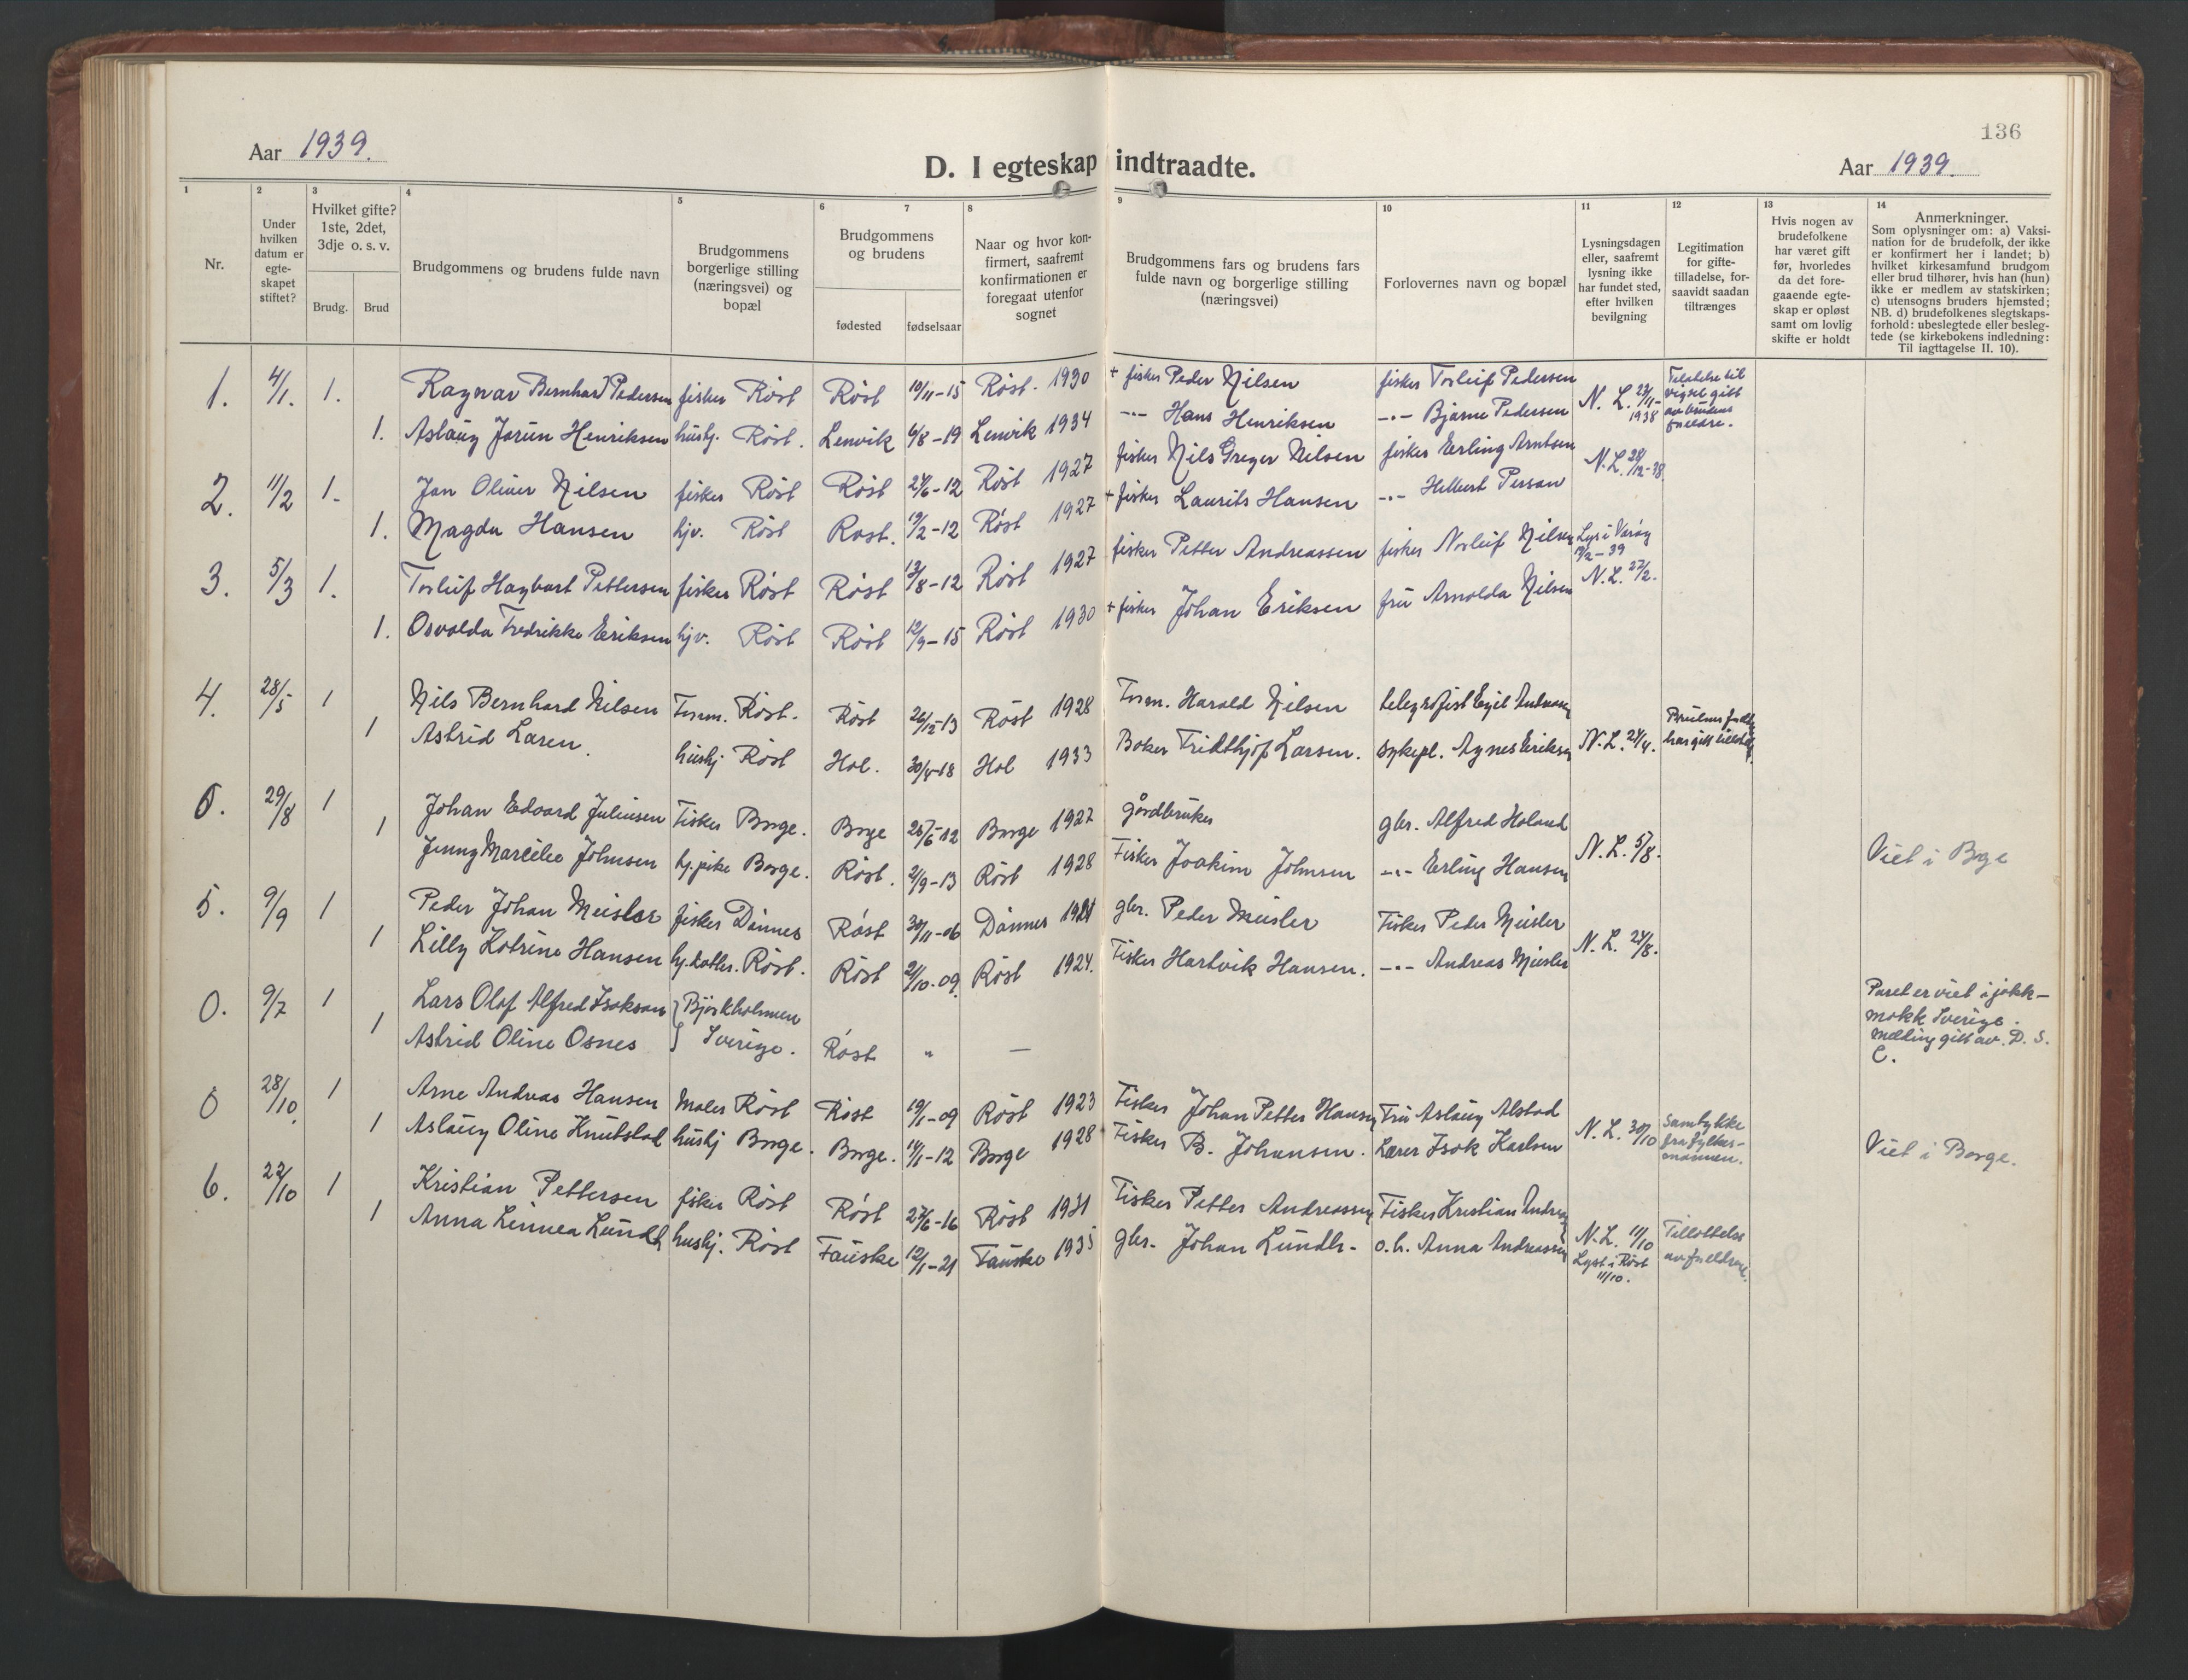 136
Aar 1939.
D. I egteskap indtraadte.
Aar 1939.
1 2 3 4 5 6 7 8 9 10 11 12 13 14
Nr.
Under hvilken datum er egte- skapet stiftet?
Hvilket gifte? 1ste, 2det, 3dje o. s. v.
Brudg. Brud
Brudgommens og brudens fulde navn
Brudgommens borgerlige stilling (næringsvei) og bopæl
Brudgommens og brudens
fødested fødselsaar
Naar og hvor kon- firmert, saafremt konfirmationen er foregaat utenfor sognet
Brudgommens fars og brudens fars fulde navn og borgerlige stilling (næringsvei)
Forlovernes navn og bopæl
Lysningsdagen eller, saafremt lysning ikke har fundet sted, efter hvilken bevilgning
Legitimation for gifte- tilladelse, for- saavidt saadan tiltrænges
Hvis nogen av brudefolkene har været gift før, hvorledes da det fore- gaaende egte- skap er opløst samt om lovlig skifte er holdt
Anmerkninger.
Som oplysninger om: a) Vaksi- nation for de brudefolk, der ikke er konfirmert her i landet; b) hvilket kirkesamfund brudgom eller brud tilhører, hvis han (hun) ikke er medlem av statskirken; c) utensogns bruders hjemsted; NB. d) brudefolkenes slegtskaps- forhold: ubeslegtede eller besleg- tede (se kirkebokens indledning: Til iagttagelse II. 10).
1. 4/1. 1. Ragnvar Bernhard Pedersen fisker Röst Röst 10/11-15 Röst. 1930 + fisker Peder Nilsen fisker Torleif Pedersen N. L. 23/11-1938 til vigsel gitt av brudens foreldre.
1. Aslaug Jorun Henriksen hushj. Röst. Lenvik 6/8-19 Lenvik 1934 -"- Hans Henriksen -"- Bjarne Pedersen
2. 11/2 1. Jan Oliver Nilsen fisker Röst Röst 27/6-12 Röst 1927 fisker Nils Greger Nilsen fisker Erling Arntsen N. L. 28/12-38
1. Magda Hansen hjv. Röst Rost. 19/2-12 Röst 1927 + fisker Laurits Hansen -"- Helbert Persson
3. 5/3 1. Torleif Hagbart Pettersen fisker Röst Röst 13/8-12 Röst 1927 fisker Petter Andreassen fisker Norleif Nilsen Lys i Varöy 19/2-39 N. L. 22/2.
1. Osvalda Fredrikke Eriksen hjv. Röst Röst 12/9-15 Röst 1930 + fisker Johan Eriksen fru Arnolda Nilsen
4. 28/5 1 Nils Bernhard Nilsen Form. Röst. Röst 26/12-13 Röst 1928 Form. Harald Nilsen telegrafist Egil
1 Astrid Laren. hushj Röst Hol. 30/4-18 Hol 1933 Baker Fridthjof Larsen. sykepl. Agnes Eriksen N. L. 21/4. har gitt
0. 29/8 1 Johan Edvard Juliussen Fisker Borge. Borge 25/6-12 Borge 1927 gårdbruker gbr. Alfred Holand N. L. 5/8. Viet i Borge
1 Jenny Marcelie Johnsen hj.pike Borge. Röst. 2/9-13 Röst 1928 Fisker Joakim Johnsen -"- Erling Hansen
5. 9/9 1 Peder Johan Meisler fisker Dönnes Röst 30/11-06 Dönnes 1921 gbr. Peder Meisler Fisker Peder Meisler N. L. 24/8.
1 Lilly Katrine Hansen hj.datter. Röst. Röst 2/10-09 Röst 1924. Fisker Hartvik Hansen. -"- Andreas Meisler
0. 9/7 1 Lars Olof Alfred Isakson } Björkholmen Paret er viet i jokk-
1 Astrid Oline Osnes } Sverige. Röst " — mokk Sverige. melding gitt av. D. S. C.
0 28/10. 1 Arne Andreas Hansen Maler Röst Röst 19/1-09 Röst 1923 Fisker Johan Petter Hansen Fru Aslaug Alstad N. L. 30/10 Samtykke fra fylkes- mannen. Viet i Borge.
1 Aslaug Oline Knutstad hushj Borge. Borge. 14/1-12 Borge 1928 Fisker B. Johansen. Lærer Isak Karlsen
6. 22/10 1 Kristian Pettersen fisker Röst Röst 27/6-16 Röst 1931 Fisker Petter Andreassen Fisker Kristian N. L. 11/10
1 Anna Linnea Lundh hushj. Röst Fauske 12/1-21 Fauske 1935 gbr. Johan Lundh. o.h. Anna Andreassen Lyst i Röst 11/10. Tillatelse av foreldrene.